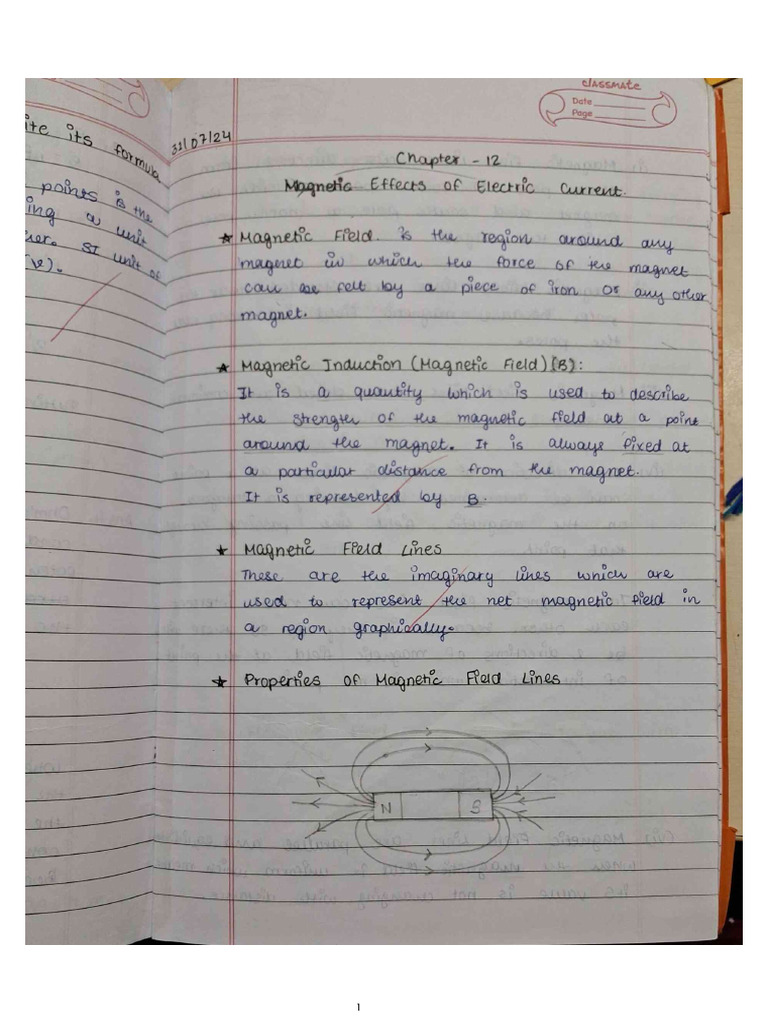 classmate
Date
Page
ite its formula
points is the
ing a unit
her. SI unit of
31/07/24
Chapter - 12
Magnetic Effects of Electric Current.
★ Magnetic Field. is the region around any
magnet in which the force of the magnet
can be felt by a piece of iron or any other
magnet.
★ Magnetic Induction (Magnetic Field) (B):
It is a quantity which is used to describe
the strength of the magnetic field at a point
around the magnet. It is always fixed at
a particular distance from the magnet.
It is represented by B.
★ Magnetic Field Lines
These are the imaginary lines which are
used to represent the net magnetic field in
a region graphically.
★ Properties of Magnetic Field Lines
N S
1